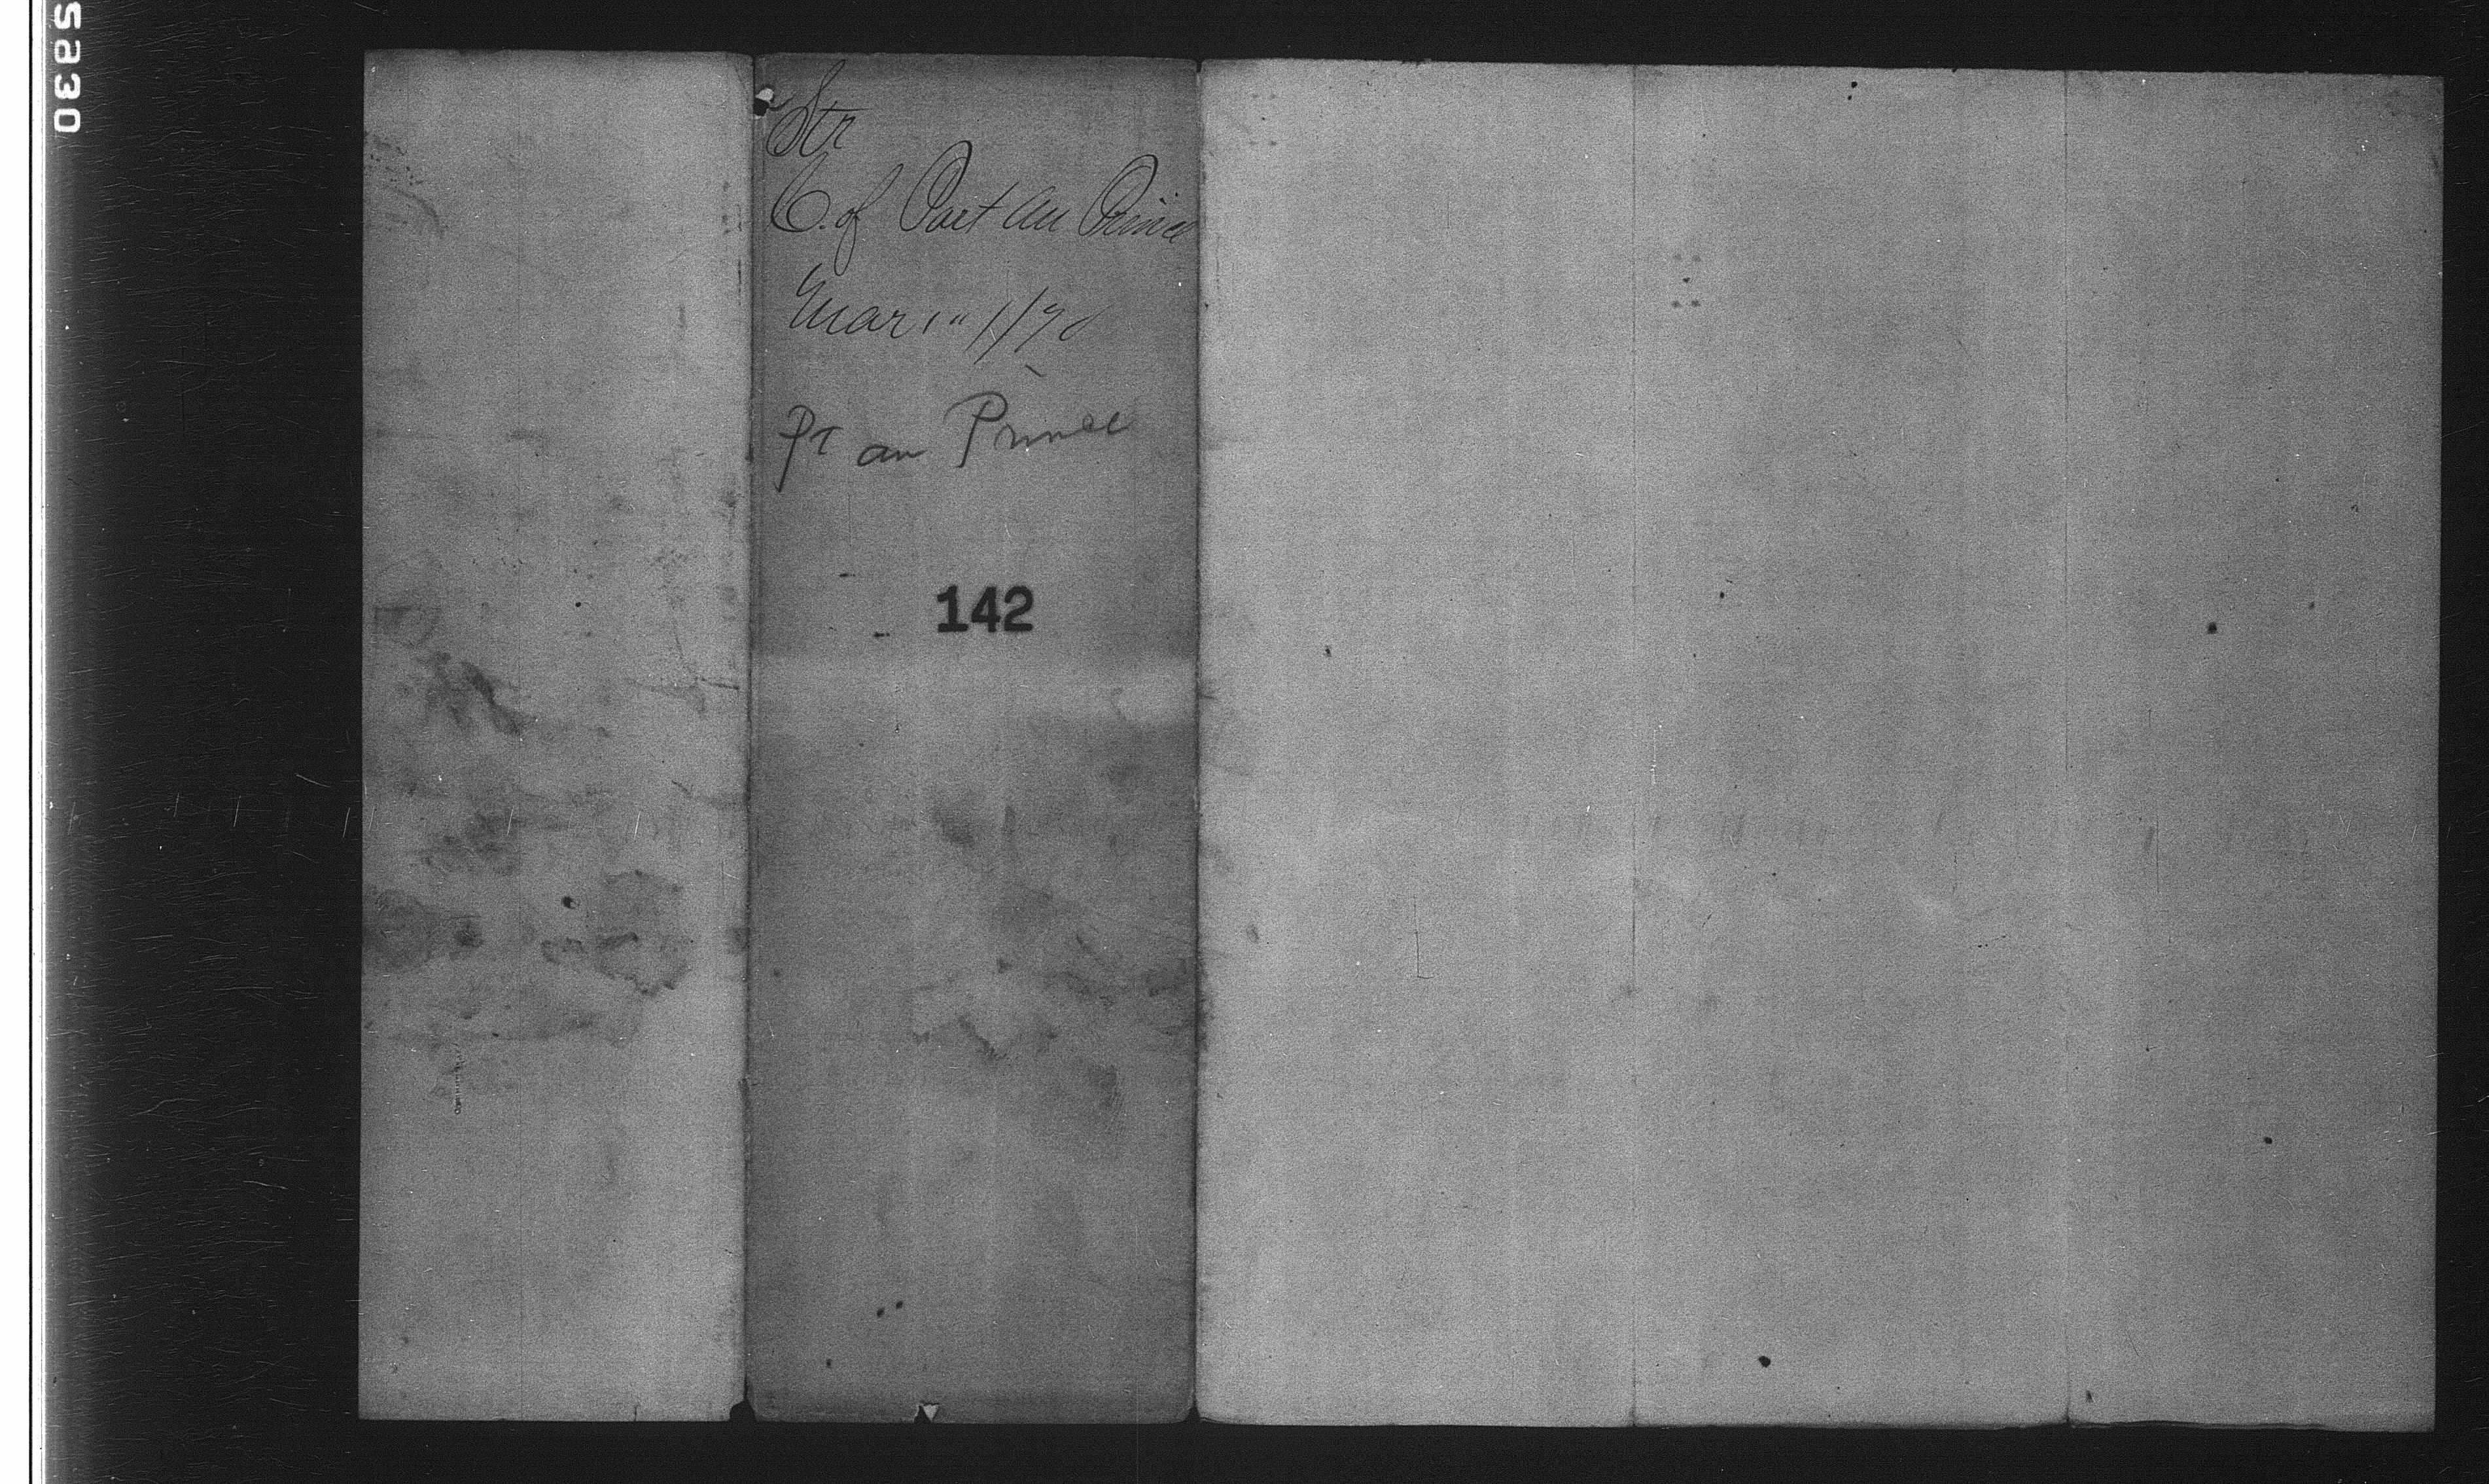 Str
C. of Port au Prince
Mar 1"
Pt au Prince
142